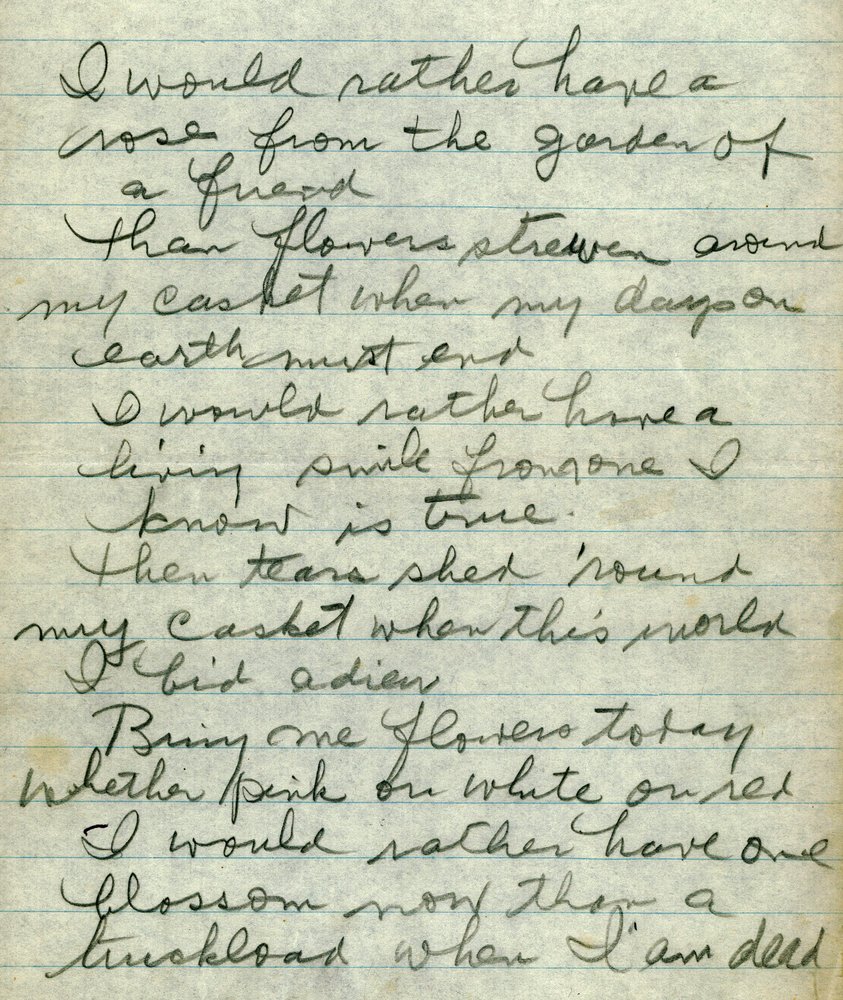 I would rather have a
rose from the garden of
a friend
than flowers strewen around
my casket when my days on
earth must end
I would rather have a
living smile from one I
know is true.
then tears shed 'round
my casket when this world
I bid adieu
Bring me flowers today
whether pink or white or red
I would rather have one
blossom now than a
truckload when I am dead